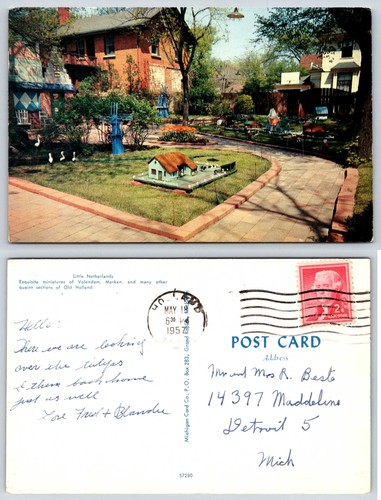 Little Netherlands
Exquisite miniatures of Volendam, Marken, and many other
quaint sections of Old Holland.
Hello:
There we are looking
over the tulips
& them back home
just as well
Love Fred & Blandie
Michigan Card Co., P.O. Box 283, Grand
57280
HOLLAND
MAY 19
6 PM
1957
2¢
POST CARD
Address
Mr and Mrs R. Beste
14397 Maddelein
Detroit 5
Mich